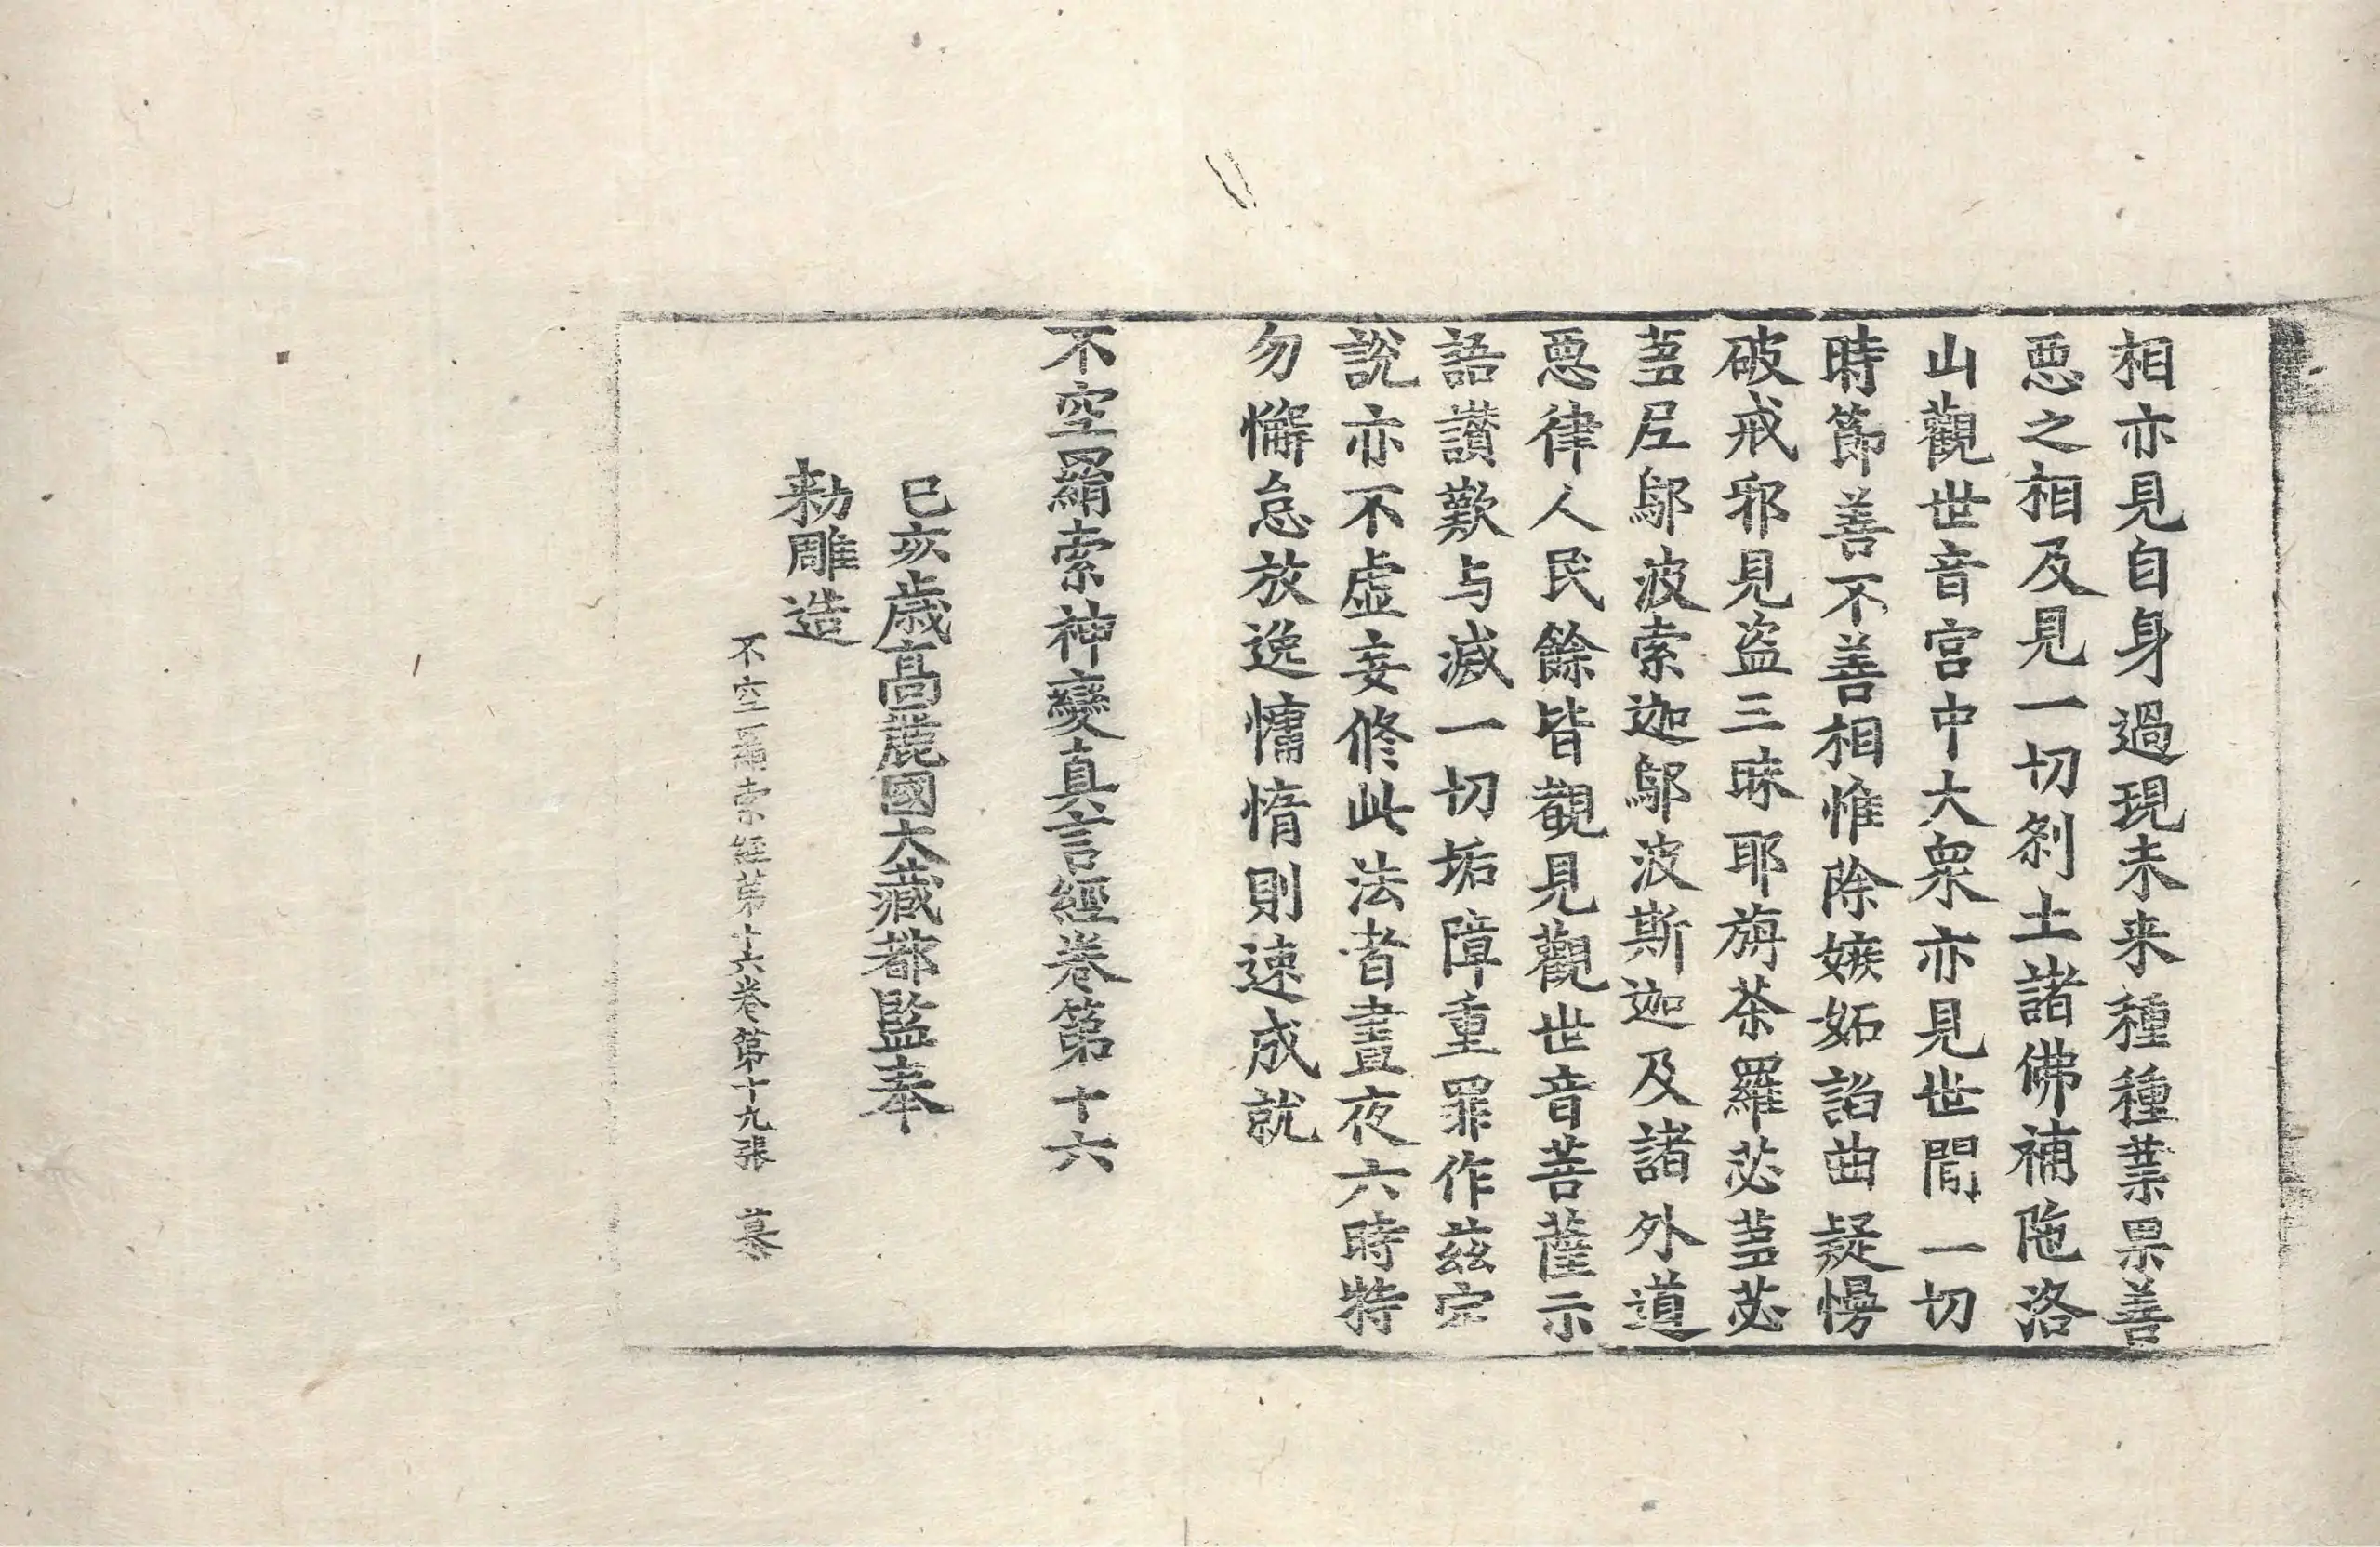 相亦見自身過現未来種種業果善
惡之相及見一切刹土諸佛補陁洛
山觀世音宮中大衆亦見世間一切
時節善不善相惟除嫉妬諂曲疑慢
破戒邪見盗三昧耶旃茶羅苾蒭苾
蒭尼鄔波索迦鄔波斯迦及諸外道
惡律人民餘皆觀見觀世音菩薩示
語讃歎与滅一切垢障重罪作茲定
說亦不虛妄修此法者晝夜六時特
勿懈怠放逸慵惰則速成就
不空羂索神變真言經卷第十六
己亥歳高麗國大藏都監奉
勅雕造
不空羂索經第十六卷第十九張